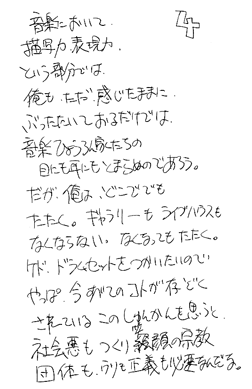 音楽において、
描写力、表現力、
という部分では、
俺も、ただ、感じたままに、
ぶったたいておるだけでは、
音楽ひょうろん家たちの
目にも耳にもとまらぬのであろう。
だが、俺は、どこででも
たたく。ギャラリーも ライブハウスも
なくならない。なくなってもたたく。
ケド、ドラムセットをつかいたいので
やっぱ、今すべてのコトが存ぞく
されている このしゅんかんを思うと、
社会悪も つくり の宗教
団体も、ウソも正義も必要なんでる。